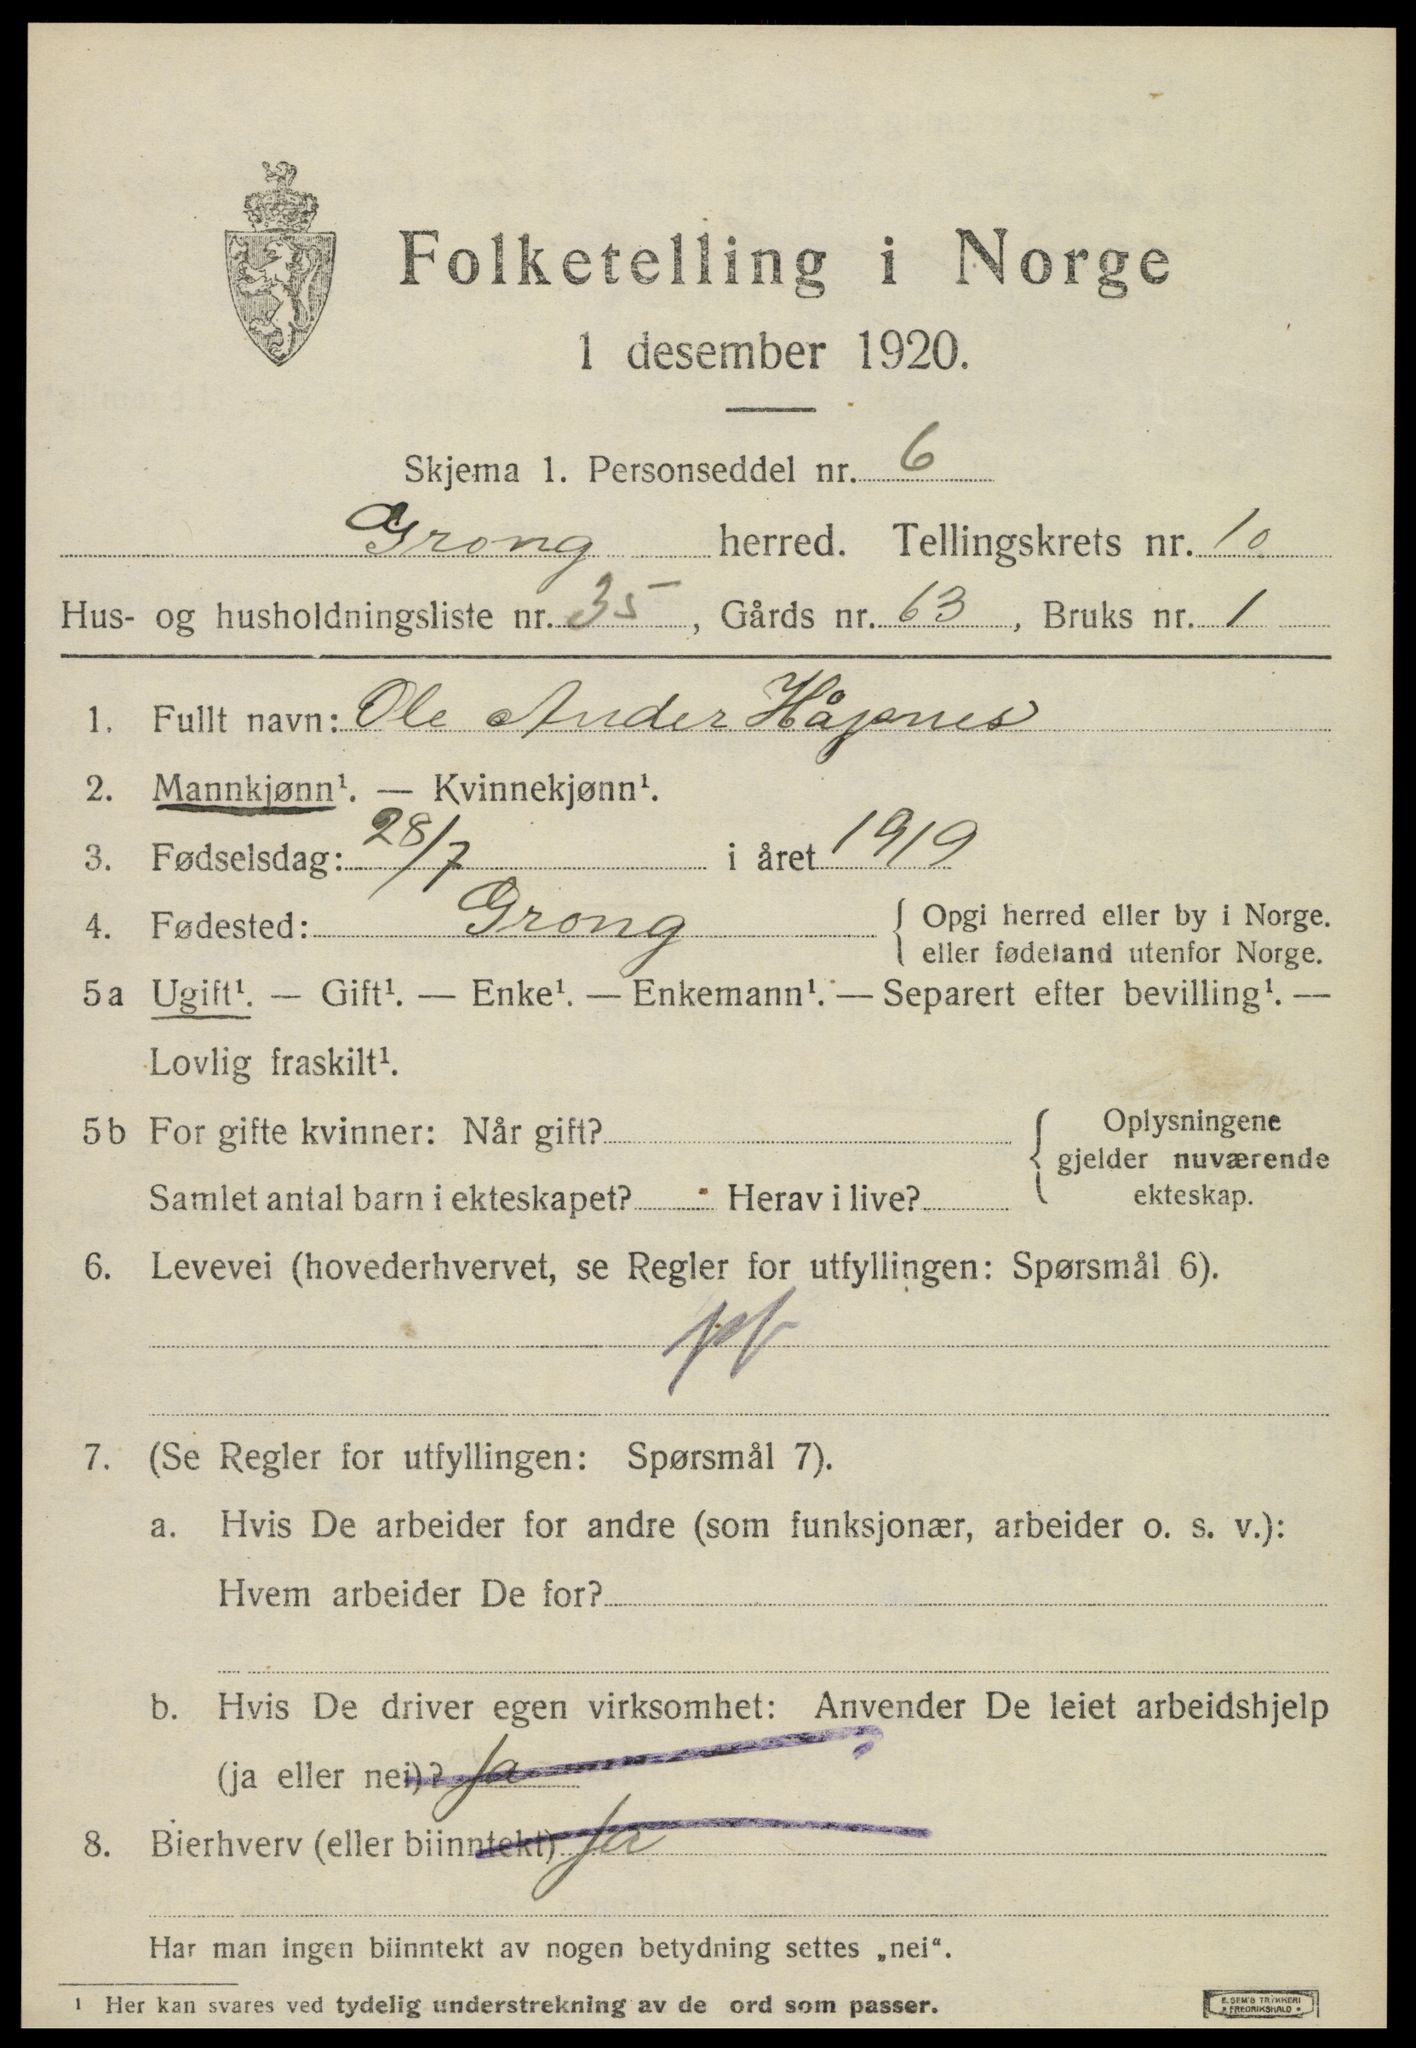 Folketelling i Norge
1 desember 1920.
Skjema 1. Personseddel nr. 6
Grong herred. Tellingskrets nr. 10
Hus- og husholdningsliste nr. 35, Gårds nr. 63, Bruks nr. 1
1. Fullt navn: Ole Ander Håpnes
2. Mannkjønn¹. — Kvinnekjønn¹.
3. Fødselsdag: 28/7 i året 1919
4. Fødested: Grong { Opgi herred eller by i Norge.
eller fødeland utenfor Norge.
5a Ugift¹. — Gift¹. — Enke¹. — Enkemann¹. — Separert efter bevilling¹. —
Lovlig fraskilt¹.
5b For gifte kvinner: Når gift? { Oplysningene
gjelder nuværende
Samlet antal barn i ekteskapet? Herav i live? ekteskap.
6. Levevei (hovederhvervet, se Regler for utfyllingen: Spørsmål 6).
7. (Se Regler for utfyllingen: Spørsmål 7).
a. Hvis De arbeider for andre (som funksjonær, arbeider o. s. v.):
Hvem arbeider De for?
b. Hvis De driver egen virksomhet: Anvender De leiet arbeidshjelp
(ja eller nei)? Ja
8. Bierhverv (eller biinntekt) Ja
Har man ingen biinntekt av nogen betydning settes „nei“.
¹ Her kan svares ved tydelig understrekning av de ord som passer.
E. SEM'S TRYKKERI
FREDRIKSHALD